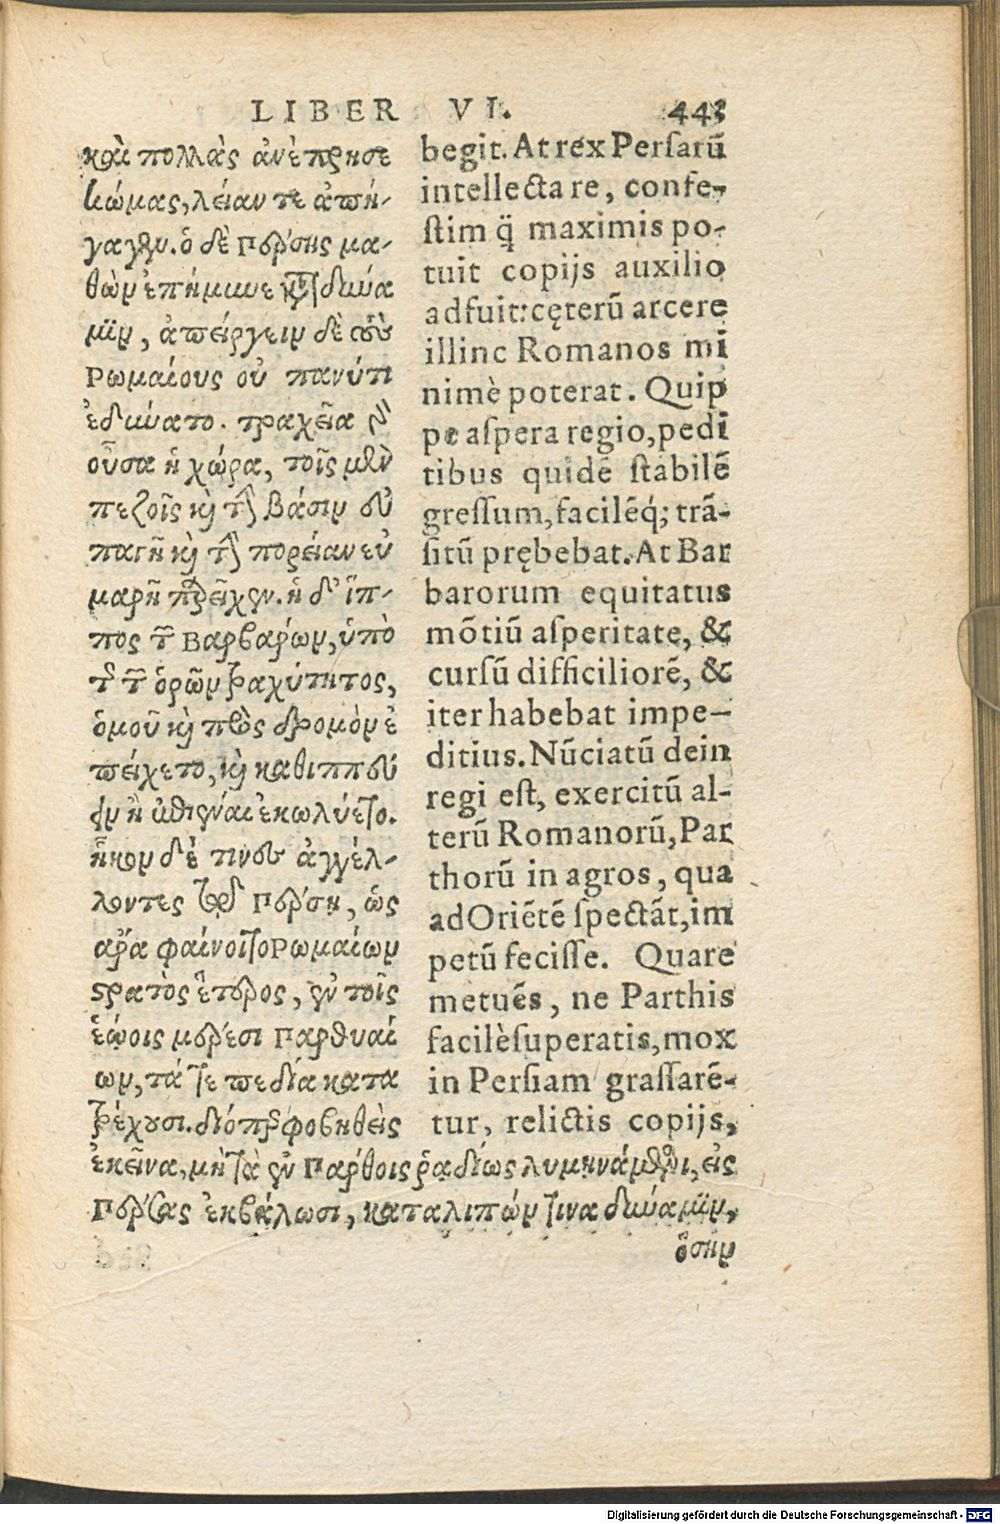 LIBER VI. 443
καὶ πολλὰς ἀνέπρησε
κώμας, λείαν τε ἀπή-
γαγεν. ὁ δὲ Πέρσης μα-
θὼν ἐπήμυνε κατὰ δύνα
μιν, ἀπείργειν δὲ τοὺς
Ρωμαίους οὐ πανύτι
ἐδύνατο. τραχεῖα γὰρ
οὖσα ἡ χώρα, τοῖς μὲν
πεζοῖς καὶ τὴν βάσιν εὐ
παγῆ καὶ τὴν πορείαν εὐ
μαρῆ παρεῖχεν. ἡ δ' ἵπ-
πος τῶν Βαρβαρων, ὑπὸ
τῆς τῶν ὁρῶν τραχύτητος,
ὁμοῦ καὶ πρὸς δρομὸν ἐ
πείχετο, καὶ καθιππεύ
ειν ἢ ἀντιβῆναι ἐκωλύετο.
ἧκον δέ τινες ἀγγέλ-
λοντες τῷ Πέρσῃ, ὡς
ἄρα φαίνοιτο Ρωμαίων
στρατὸς ἕτερος, ἐν τοῖς
ἑῴοις μέρεσι Παρθυαί
ων, τά τε πεδία κατα
τρέχουσι. διόπερ φοβηθεὶς
ἐκεῖνα, μὴ τὰ ἐν Πάρθοις ῥᾳδίως λυμηνάμενοι, εἰς
Πέρσας ἐκβάλωσι, καταλιπών τινα δύναμιν,
ὅσην
begit. At rex Persarũ
intellecta re, confe-
stim q̃ maximis po-
tuit copijs auxilio
adfuit: cęterũ arcere
illinc Romanos mi
nimè poterat. Quip
pe aspera regio, pedi
tibus quidẽ stabilẽ
gressum, facilẽq́; trã-
sitũ prębebat. At Bar
barorum equitatus
mõtiũ asperitate, &
cursũ difficiliorẽ, &
iter habebat impe-
ditius. Nũciatũ dein
regi est, exercitũ al-
terũ Romanorũ, Par
thorũ in agros, qua
ad Oriẽtẽ spectãt, im
petũ fecisse. Quare
metuẽs, ne Parthis
facilè superatis, mox
in Persiam grassarẽ-
tur, relictis copijs,
Digitalisierung gefördert durch die Deutsche Forschungsgemeinschaft - DFG